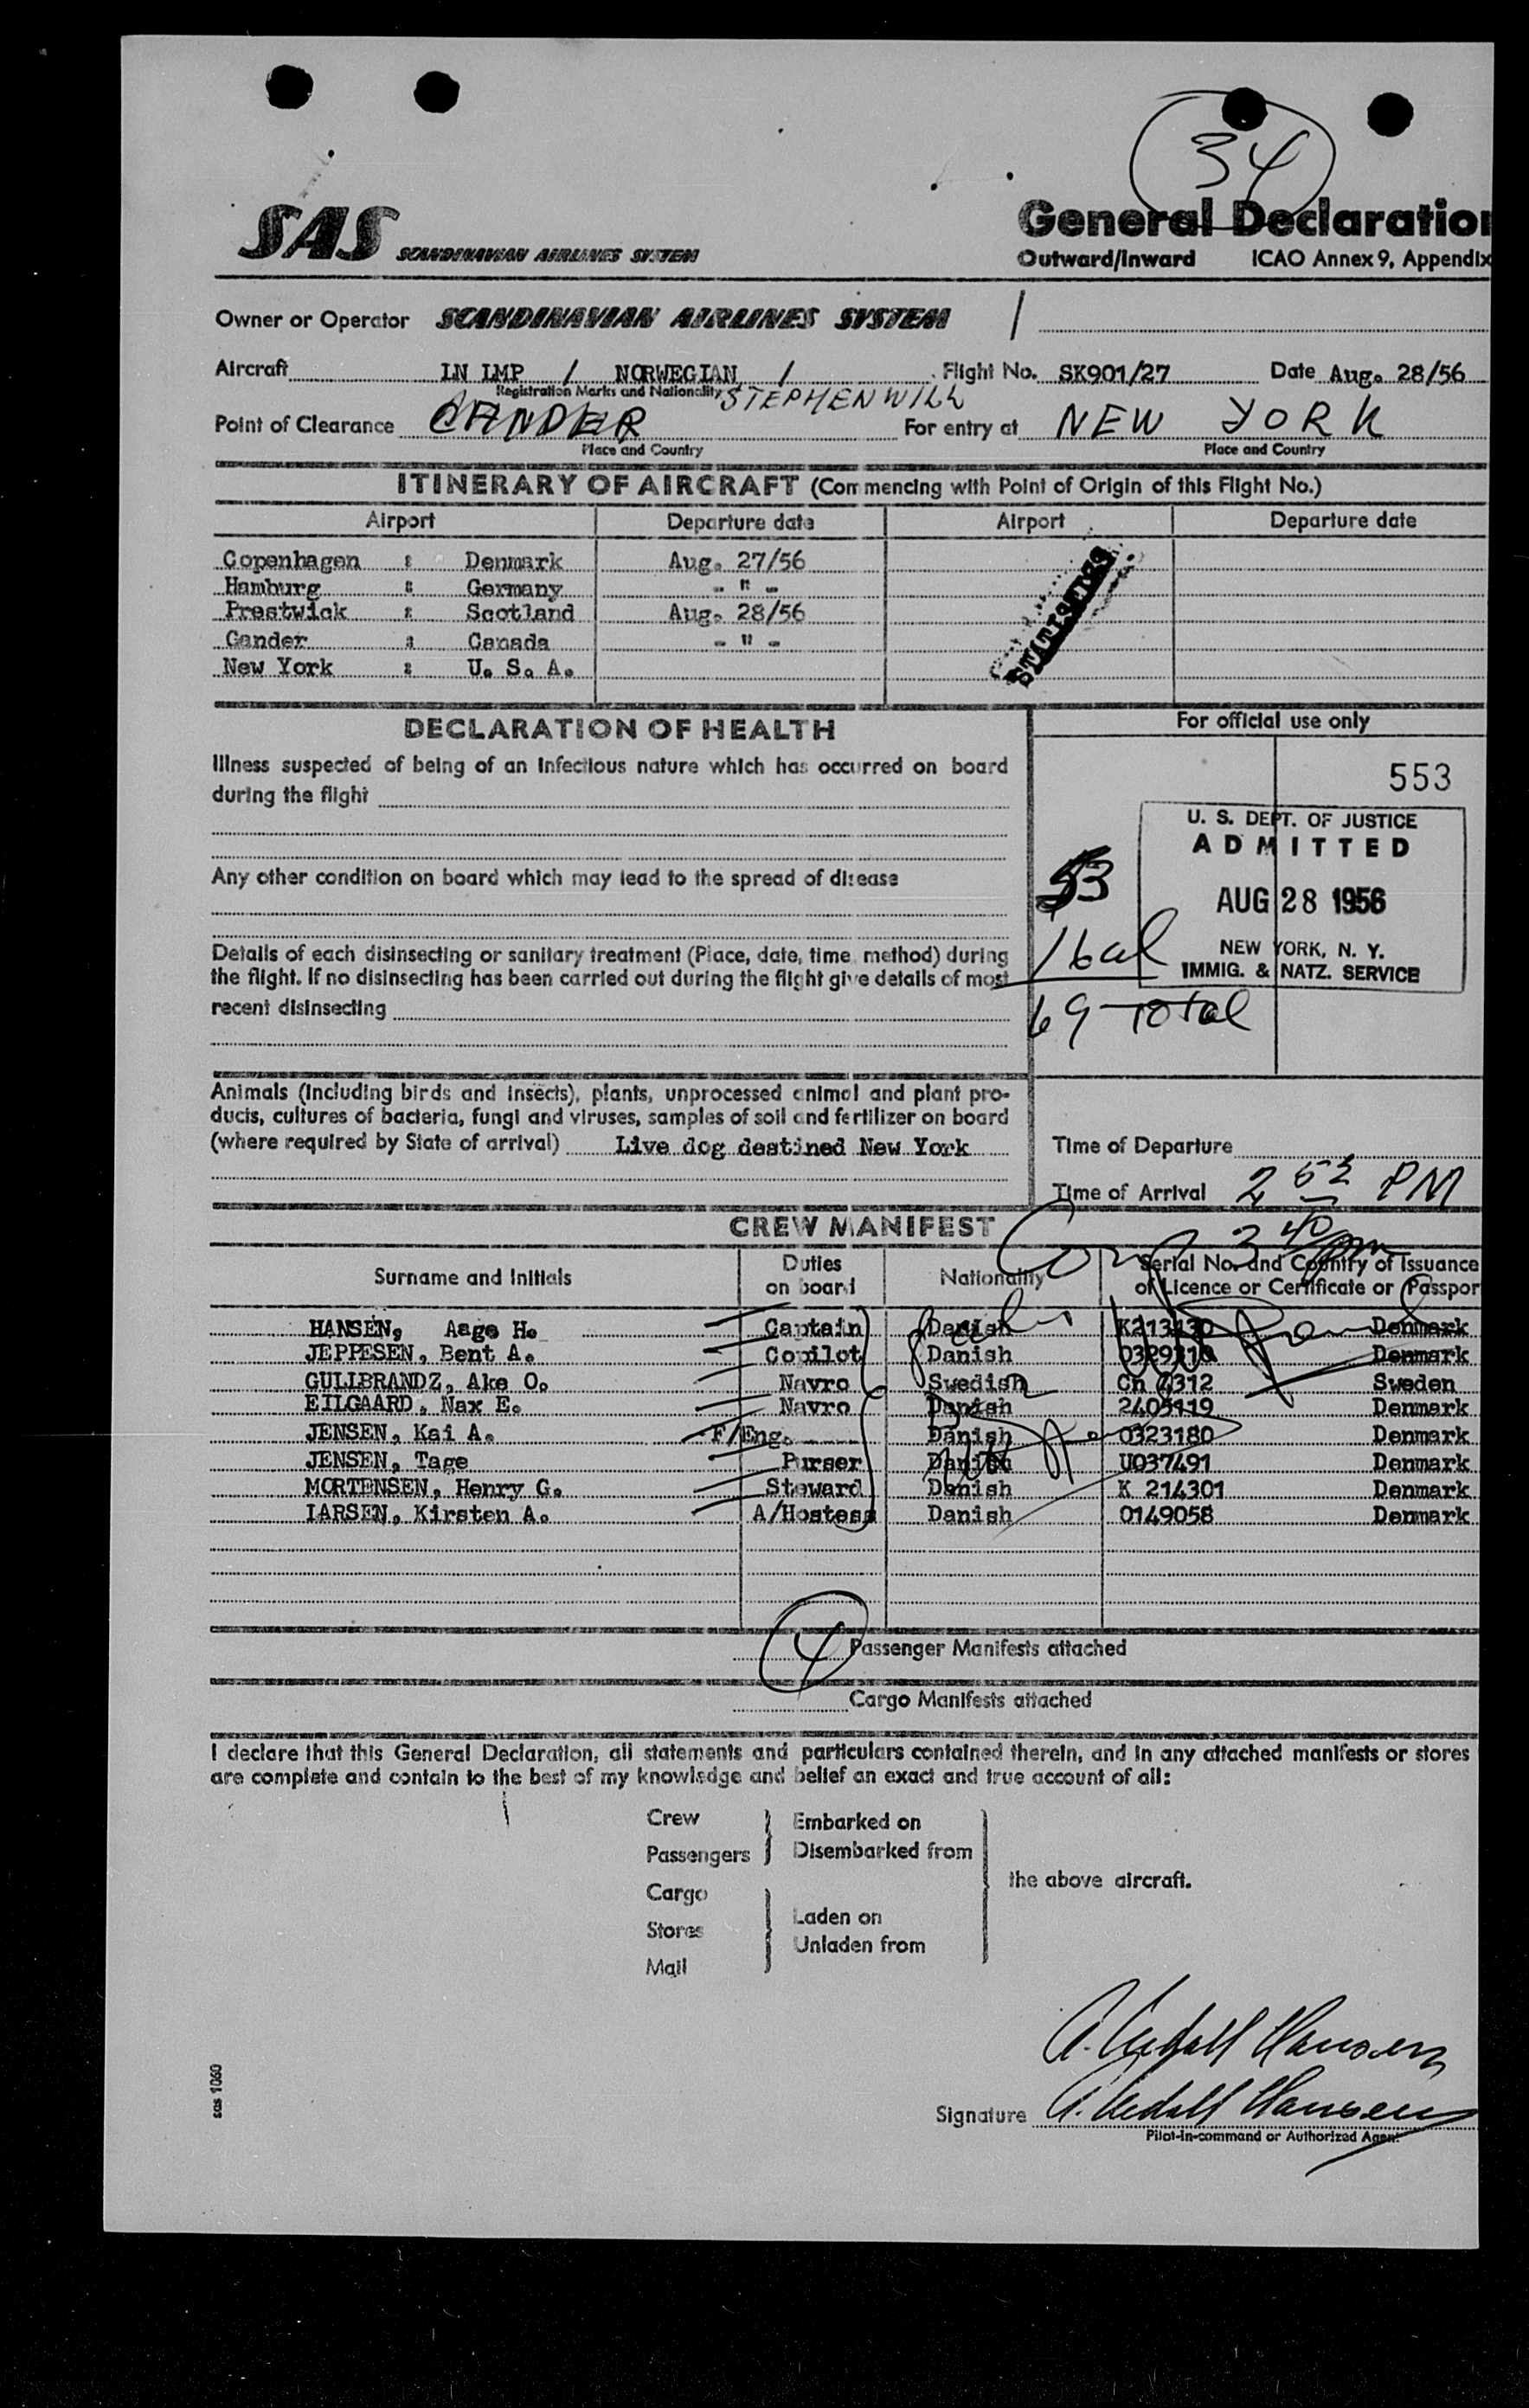 34
SAS SCANDINAVIAN AIRLINES SYSTEM
General Declaratio
Outward/Inward ICAO Annex 9, Appendix
Owner or Operator SCANDINAVIAN AIRLINES SYSTEM /
Aircraft LN LMP / NORWEGIAN / Flight No. SK901/27 Date Aug. 28/56
Registration Marks and Nationality
STEPHENVILL
Point of Clearance GANDER For entry at NEW YORK
Place and Country Place and Country
ITINERARY OF AIRCRAFT (Commencing with Point of Origin of this Flight No.)
Airport Departure date Airport Departure date
Copenhagen : Denmark Aug. 27/56
Hamburg : Germany - " -
Prestwick : Scotland Aug. 28/56
Gander : Canada - " -
New York : U. S. A.
STATISTICS
DECLARATION OF HEALTH
Illness suspected of being of an infectious nature which has occurred on board
during the flight
Any other condition on board which may lead to the spread of disease
Details of each disinsecting or sanitary treatment (Place, date, time, method) during
the flight. If no disinsecting has been carried out during the flight give details of most
recent disinsecting
Animals (including birds and insects), plants, unprocessed animal and plant pro-
ducts, cultures of bacteria, fungi and viruses, samples of soil and fertilizer on board
(where required by State of arrival) Live dog destined New York
For official use only
553
U. S. DEPT. OF JUSTICE
ADMITTED
AUG 28 1956
NEW YORK, N. Y.
IMMIG. & NATZ. SERVICE
53
16 al
69 Total
Time of Departure
Time of Arrival 2 52 PM
3 40 pm
CREW MANIFEST
Surname and Initials Duties on board Nationality Serial No. and Country of Issuance of Licence or Certificate or Passpor
HANSEN, Aage H. Captain Danish K213130 Denmark
JEPPESEN, Bent A. Copilot Danish 0329310 Denmark
GULLBRANDZ, Ake O. Navro Swedish Cn 7312 Sweden
EILGAARD, Nax E. Navro Danish 2405119 Denmark
JENSEN, Kai A. F/Eng. Danish 0323180 Denmark
JENSEN, Tage Purser Danish U037491 Denmark
MORTENSEN, Henry G. Steward Danish K 214301 Denmark
LARSEN, Kirsten A. A/Hostess Danish 0149058 Denmark
4 Passenger Manifests attached
Cargo Manifests attached
I declare that this General Declaration, all statements and particulars contained therein, and in any attached manifests or stores
are complete and contain to the best of my knowledge and belief an exact and true account of all:
Crew
Passengers
Embarked on
Disembarked from
Cargo
Stores
Mail
Laden on
Unladen from
the above aircraft.
Hansen
Signature Hansen
Pilot-in-command or Authorized Agent
sas 1060